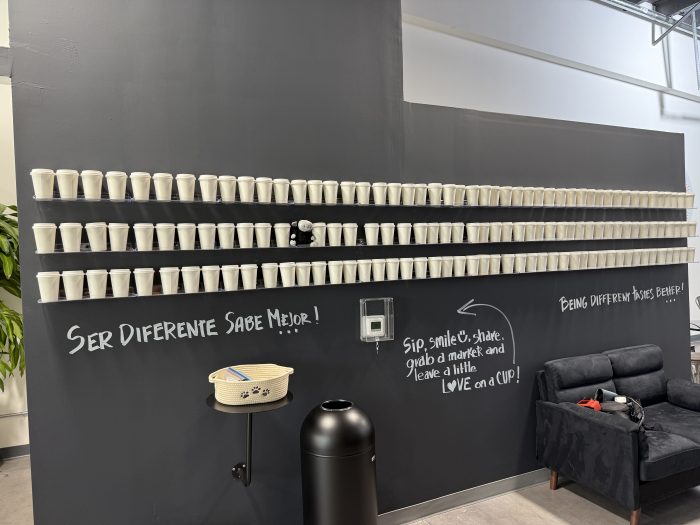 SER DIFERENTE SABE MEJOR!
Sip, smile, share,
grab a marker and
leave a little
LOVE on a CUP!
BEING DIFFERENT TASTES BETTER!